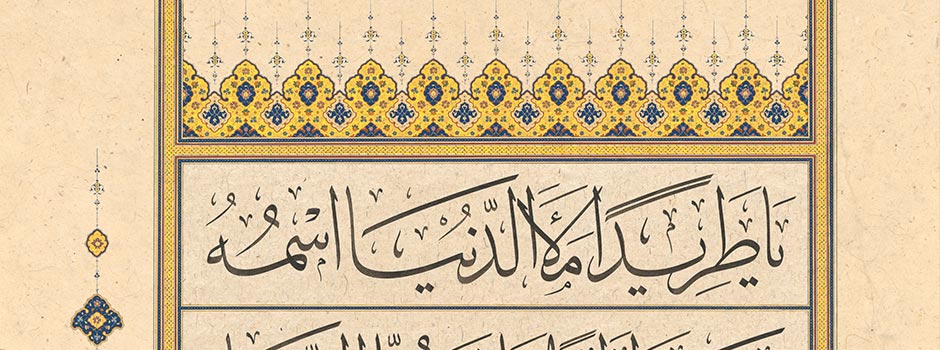 يَا طَرِيدًا مَلَأَ الدُّنْيَا اسْمُهُ